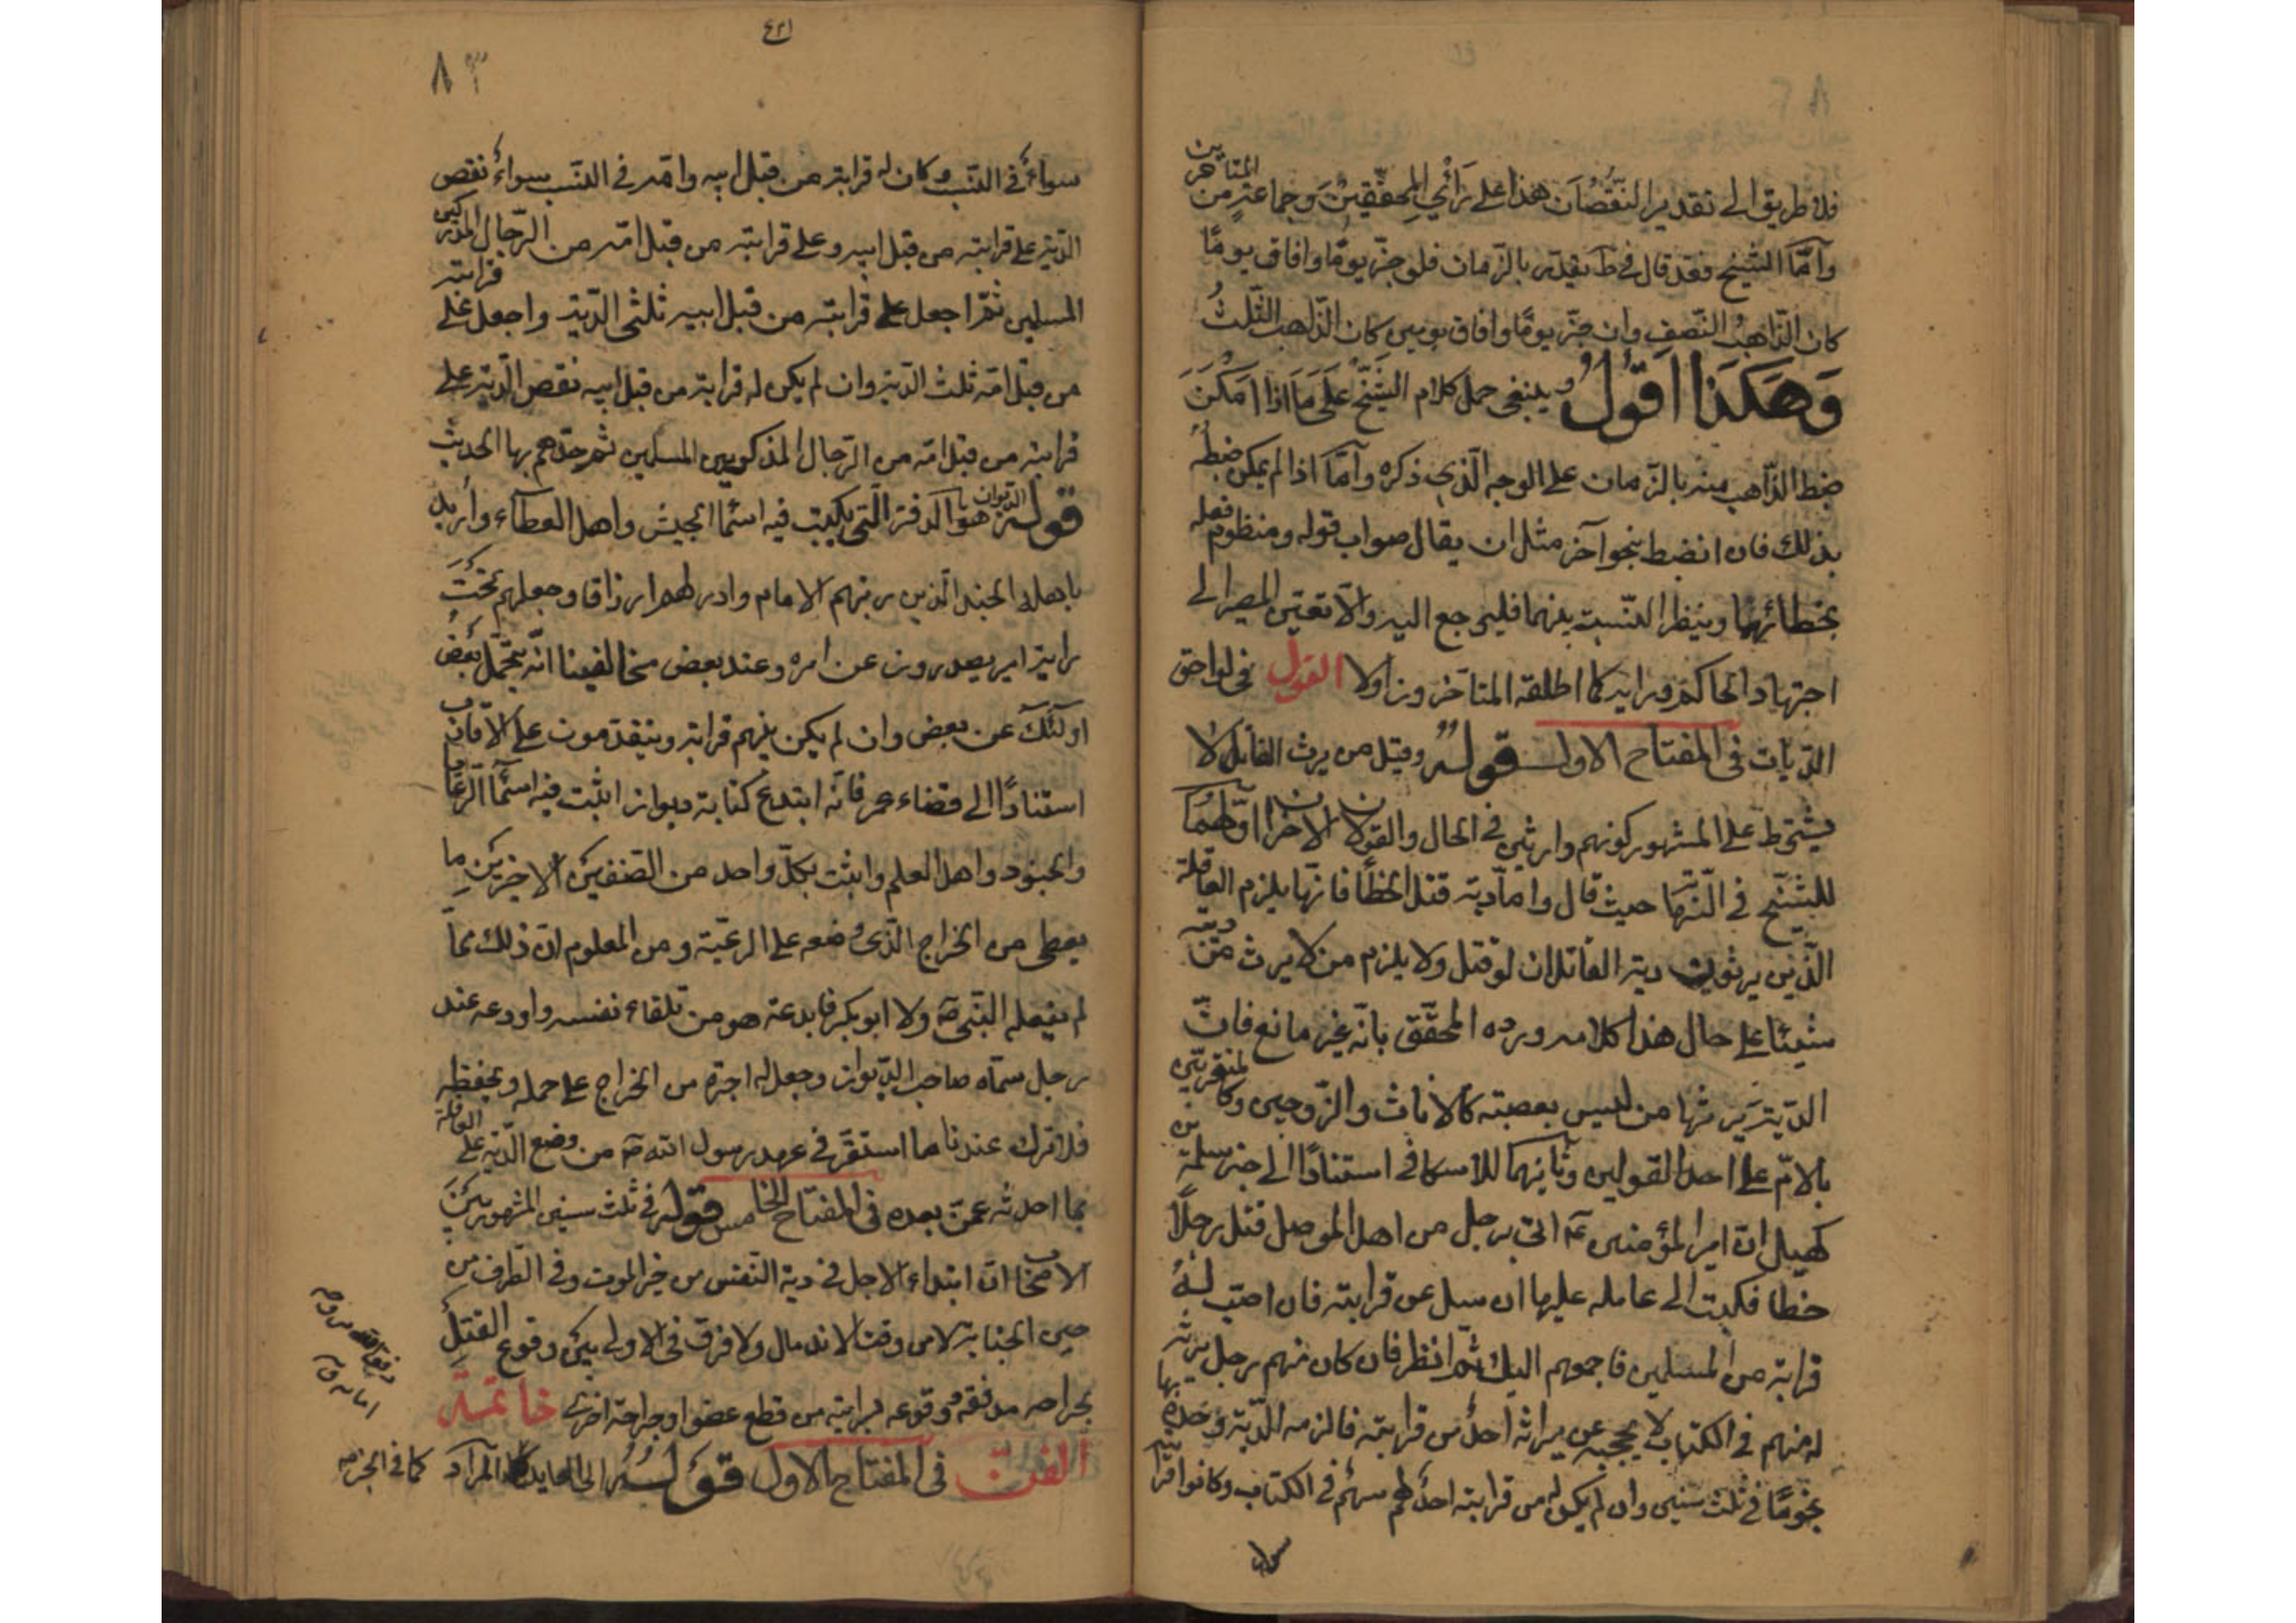 فلا طريق الى تقدير النقصان هذا على رأي المحققين وجماعة من المتأخرين
وأما الشيخ فقد قال في ط يقدّر بالزمان فلو جنّ يومًا وافاق يومًا
كان الذّاهب النّصف وان جنّ يومًا وافاق يومين كان الذّاهب الثّلث
وهكذا اقول وينبغى حمل كلام الشيخ على ما اذا امكن
ضبط الذّاهب منه بالزمان على الوجه الّذى ذكره وأمّا اذا لم يمكن ضبطه
بذلك فان انضبط بنحو آخر مثل ان يقال صواب قوله ومنظوم فعله
بخطائهما وينظر النّسبة بينهما فليرجع اليه والّا تعيّن المصير الى
اجتهاد الحاكم ورايه كما اطلقه المتأخرون اولا القول فى لواحق
الدّيات فى المفتاح الاول قوله وقيل من يرث القاتل لا
يشترط على المشهور كونهم وارثين في الحال والقولان الاخران اوّلهما
للشيخ في النّهاية حيث قال وامّا دية قتل الخطأ فانّها يلزم العاقلة
الّذين يرثون دية القاتل ان لو قتل ولا يلزم من لا يرث من ديته
شيئا على حال هذا كلامه ورده المحقّق بانّه غير مانع فانّ
الدّية يرثها من ليس بعصبته كالاناث والزّوجين وكالمتقربين
بالامّ على احد القولين وثانيهما للاسكافى استنادًا الى خبر سلمة بن
كهيل ان امير المؤمنين ع اتى برجل من اهل الموصل قتل رجلًا
خطأ فكتب الى عامله عليها ان سيل عن قرابته فان اصبت له
قرابة من المسلمين فاجمعهم اليك ثم انظر فان كان منهم رجل يرثه
له منهم في الكتاب لا يحجبه عن ميراثه احد من قرابته فالزمه الدّية وخذه بها
نجومًا في ثلث سنين وان لم يكن له من قرابته احد لهم سهم في الكتاب وكانوا قرابته
سواء
٨٣
سواءً في النّسب وكان له قرابة من قبل ابيه وامّه في النّسب سواءً نقص
الدّية على قرابته من قبل ابيه وعلى قرابته من قبل امّه من الرّجال المذكورين
المسلمين ثمّ اجعل على قرابته من قبل ابيه ثلثى الدّية واجعل على قرابته
من قبل امّه ثلث الدّية وان لم يكن له قرابة من قبل ابيه نقص الدّية على
قرابته من قبل امّه من الرّجال المذكورين المسلمين ثم خذهم بها الحديث
قوله الديوان هو الدّفتر الّتى يكتب فيه اسماء الجيش واهل العطاء وأريد
باهله الجند الّذين رتبهم الامام وادرّ لهم ارزاقا وجعلهم تحت
راية امير يصدرون عن امره وعند بعض مخالفينا انّه يتحمّل بعض
اولئك عن بعض وان لم يكن بينهم قرابة ويتقدمون على الاقارب
استنادًا الى قضاء عمر فانّه ابتدع كتابة ديوان اثبت فيه اسماء الرعايا
والجنود واهل العلم واثبت بكلّ واحد من الصّنفين الاخيرين ما
يعطى من الخراج الّذى وضعه على الرعيّة ومن المعلوم انّ ذلك ممّا
لم يفعله النّبى ص ولا ابو بكر فابدعه هو من تلقاء نفسه واودعه عند
رجل سمّاه صاحب الدّيوان وجعل له اجرة من الخراج على حمله وبحفظه
فلا نترك عندنا ما استقرّ في عهد رسول الله ص من وضع الدّية على العاقلة
بما احدثه عمر بعده فى المفتاح الخامس قوله في ثلث سنين المشهور بين
الاصحاب انّ ابتداء الاجل في دية النّفس من حين الموت وفى الطّرف من
حين الجناية لا من وقت الاندمال ولا فرق في الاولى بين وقوع القتل
بجراحه مدفقه ووقوعه بسرايته من قطع عضو او جراحة اخرى خاتمة
الفن فى المفتاح الاول قوله كما فى الخبر